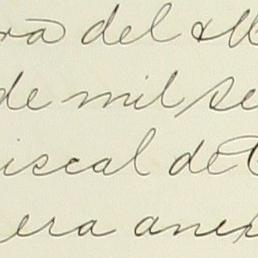 ra del
de mil se
iscal de
era anex